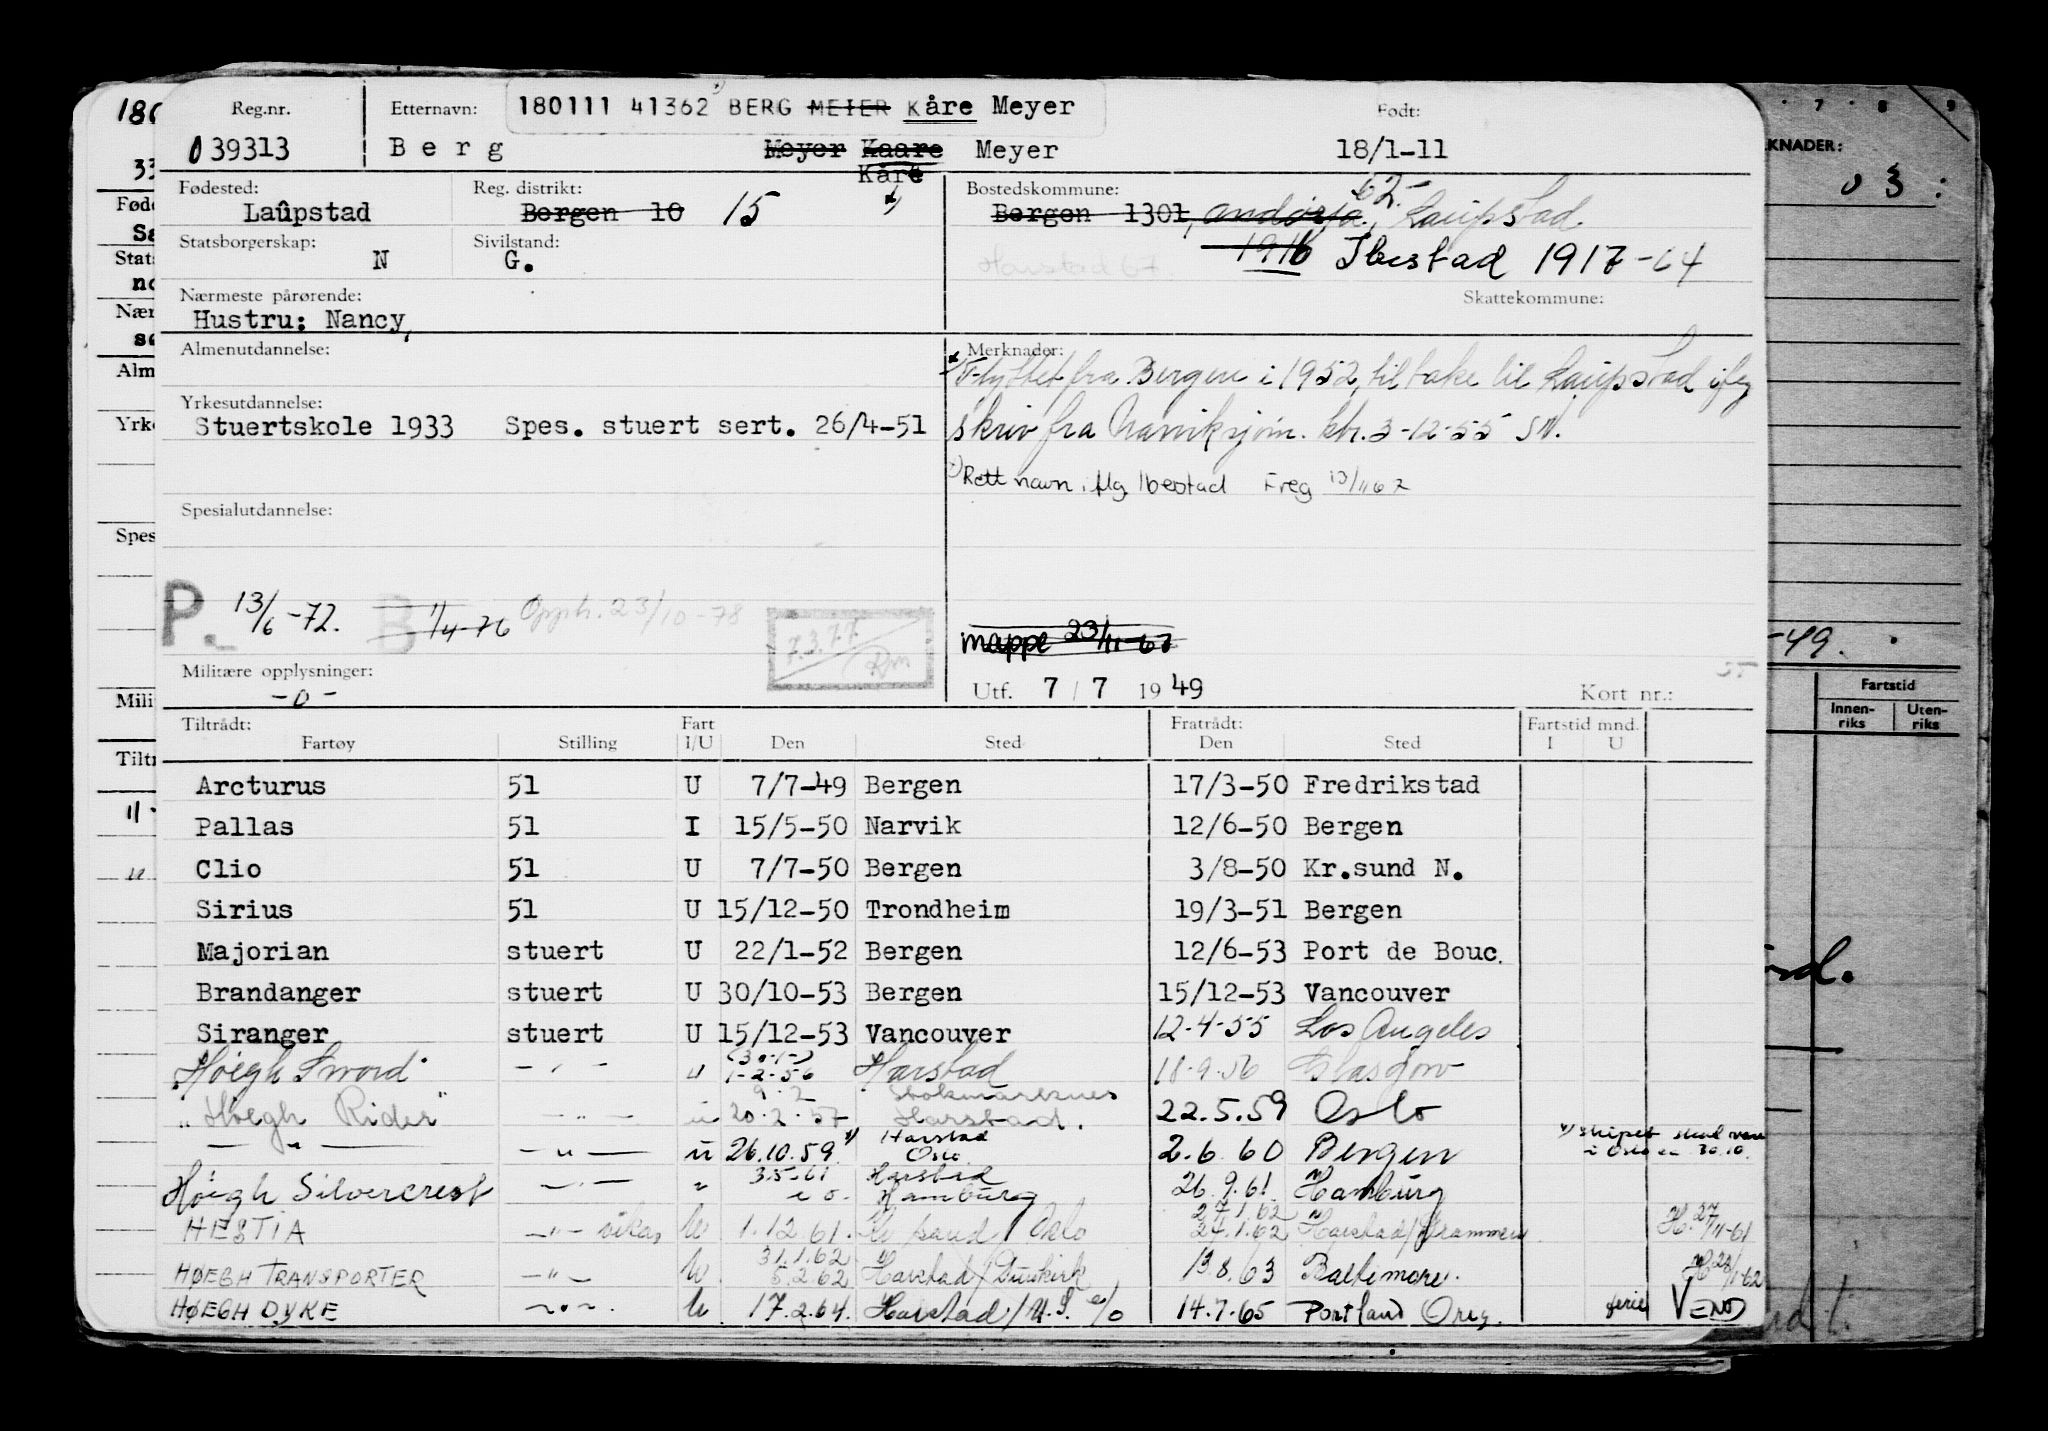 Reg.nr. Etternavn: 180111 41362 BERG MEIER Kåre Meyer Født:
039313 Berg Meyer Kaare Meyer 18/1-11
Kåre
Fødested: Reg. distrikt: Bostedskommune: 62-
Laûpstad Bergen 10 15 Bergen 1301, Andørja, Laupstad
Statsborgerskap: Sivilstand: 1916 Ibestad 1917-64
N G. Harstad 67.
Nærmeste pårørende: Skattekommune:
Hustru: Nancy,
Almenutdannelse: Merknader:
x Flyttet fra Bergen i 1952, tilbake til Laupstad iflg
Yrkesutdannelse:
Stuertskole 1933 Spes. stuert sert. 26/4-51 skriv fra Narviksjøm. ktr. 3-12-55 SN.
Rett navn iflg Ibestad Freg 13/11 67
Spesialutdannelse:
P. 13/6-72. B 1/4-76 Opph. 23/10-78 7.3.77
mappe 23/11-67
Militære opplysninger:
-0- Utf. 7/7 1949 Kort nr.:
Tiltrådt: Fart Fratrådt: Fartstid mnd.
Fartøy Stilling I/U Den Sted Den Sted I U
Arcturus 51 U 7/7-49 Bergen 17/3-50 Fredrikstad
Pallas 51 I 15/5-50 Narvik 12/6-50 Bergen
Clio 51 U 7/7-50 Bergen 3/8-50 Kr.sund N.
Sirius 51 U 15/12-50 Trondheim 19/3-51 Bergen
Majorian stuert U 22/1-52 Bergen 12/6-53 Port de Bouc.
Brandanger stuert U 30/10-53 Bergen 15/12-53 Vancouver
Siranger stuert U 15/12-53 Vancouver 12-4-55 Los Angeles
Höegh Sword - " - " (30-1-) 1-2-56 Harstad 18.9.56 Glasgow
9.2 Stokmarknes
"Höegh Rider" - " - u 20.2.57 Harstad. 22.5.59 Oslo
- " - - " - u 26.10.59 x) Harstad Oslo 2.6.60 Bergen x) skipet skal være i Oslo ca 30.10.
Höigh Silvercrest - " - " 3.5-61 e o. Harstad Hamburg 26.9.61. Hamburg
27.1.62
HESTIA - " - vikar U 1.12.61. Kr sand / Oslo 24.1.62 Harstad/Drammen H. 27/11-61
31.1.62
HØEGH TRANSPORTER - " - U 5.2.62 Harstad/Dunkirk 13.8.63 Baltimore.
HØEGH DYKE - " - U 17.2.64. Harstad/U.S. e/o 14.7.65 Portland Oreg. ferie VEND
180
33
Føde
Sa
Stats
no
Nær
se
Alm
Yrke
Spes
Mili
Tiltr
11
7 8 9
KNADER:
03:
-49.
Fartstid
Innen-riks Uten-riks